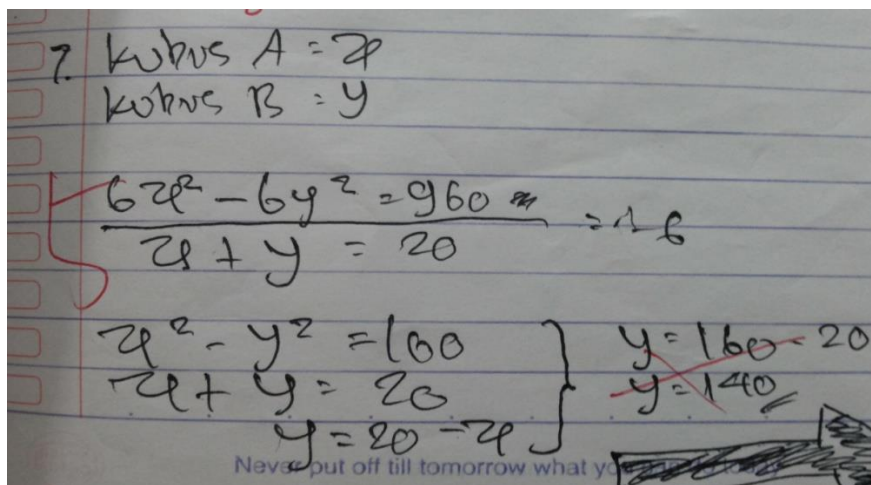 7. kubus A = x
kubus B = y
6x² - 6y² = 960
x + y = 20
= 16
x² - y² = 160
y = 160 - 20
x + y = 20
y = 140
y = 20 - x
Never put off till tomorrow what you
today